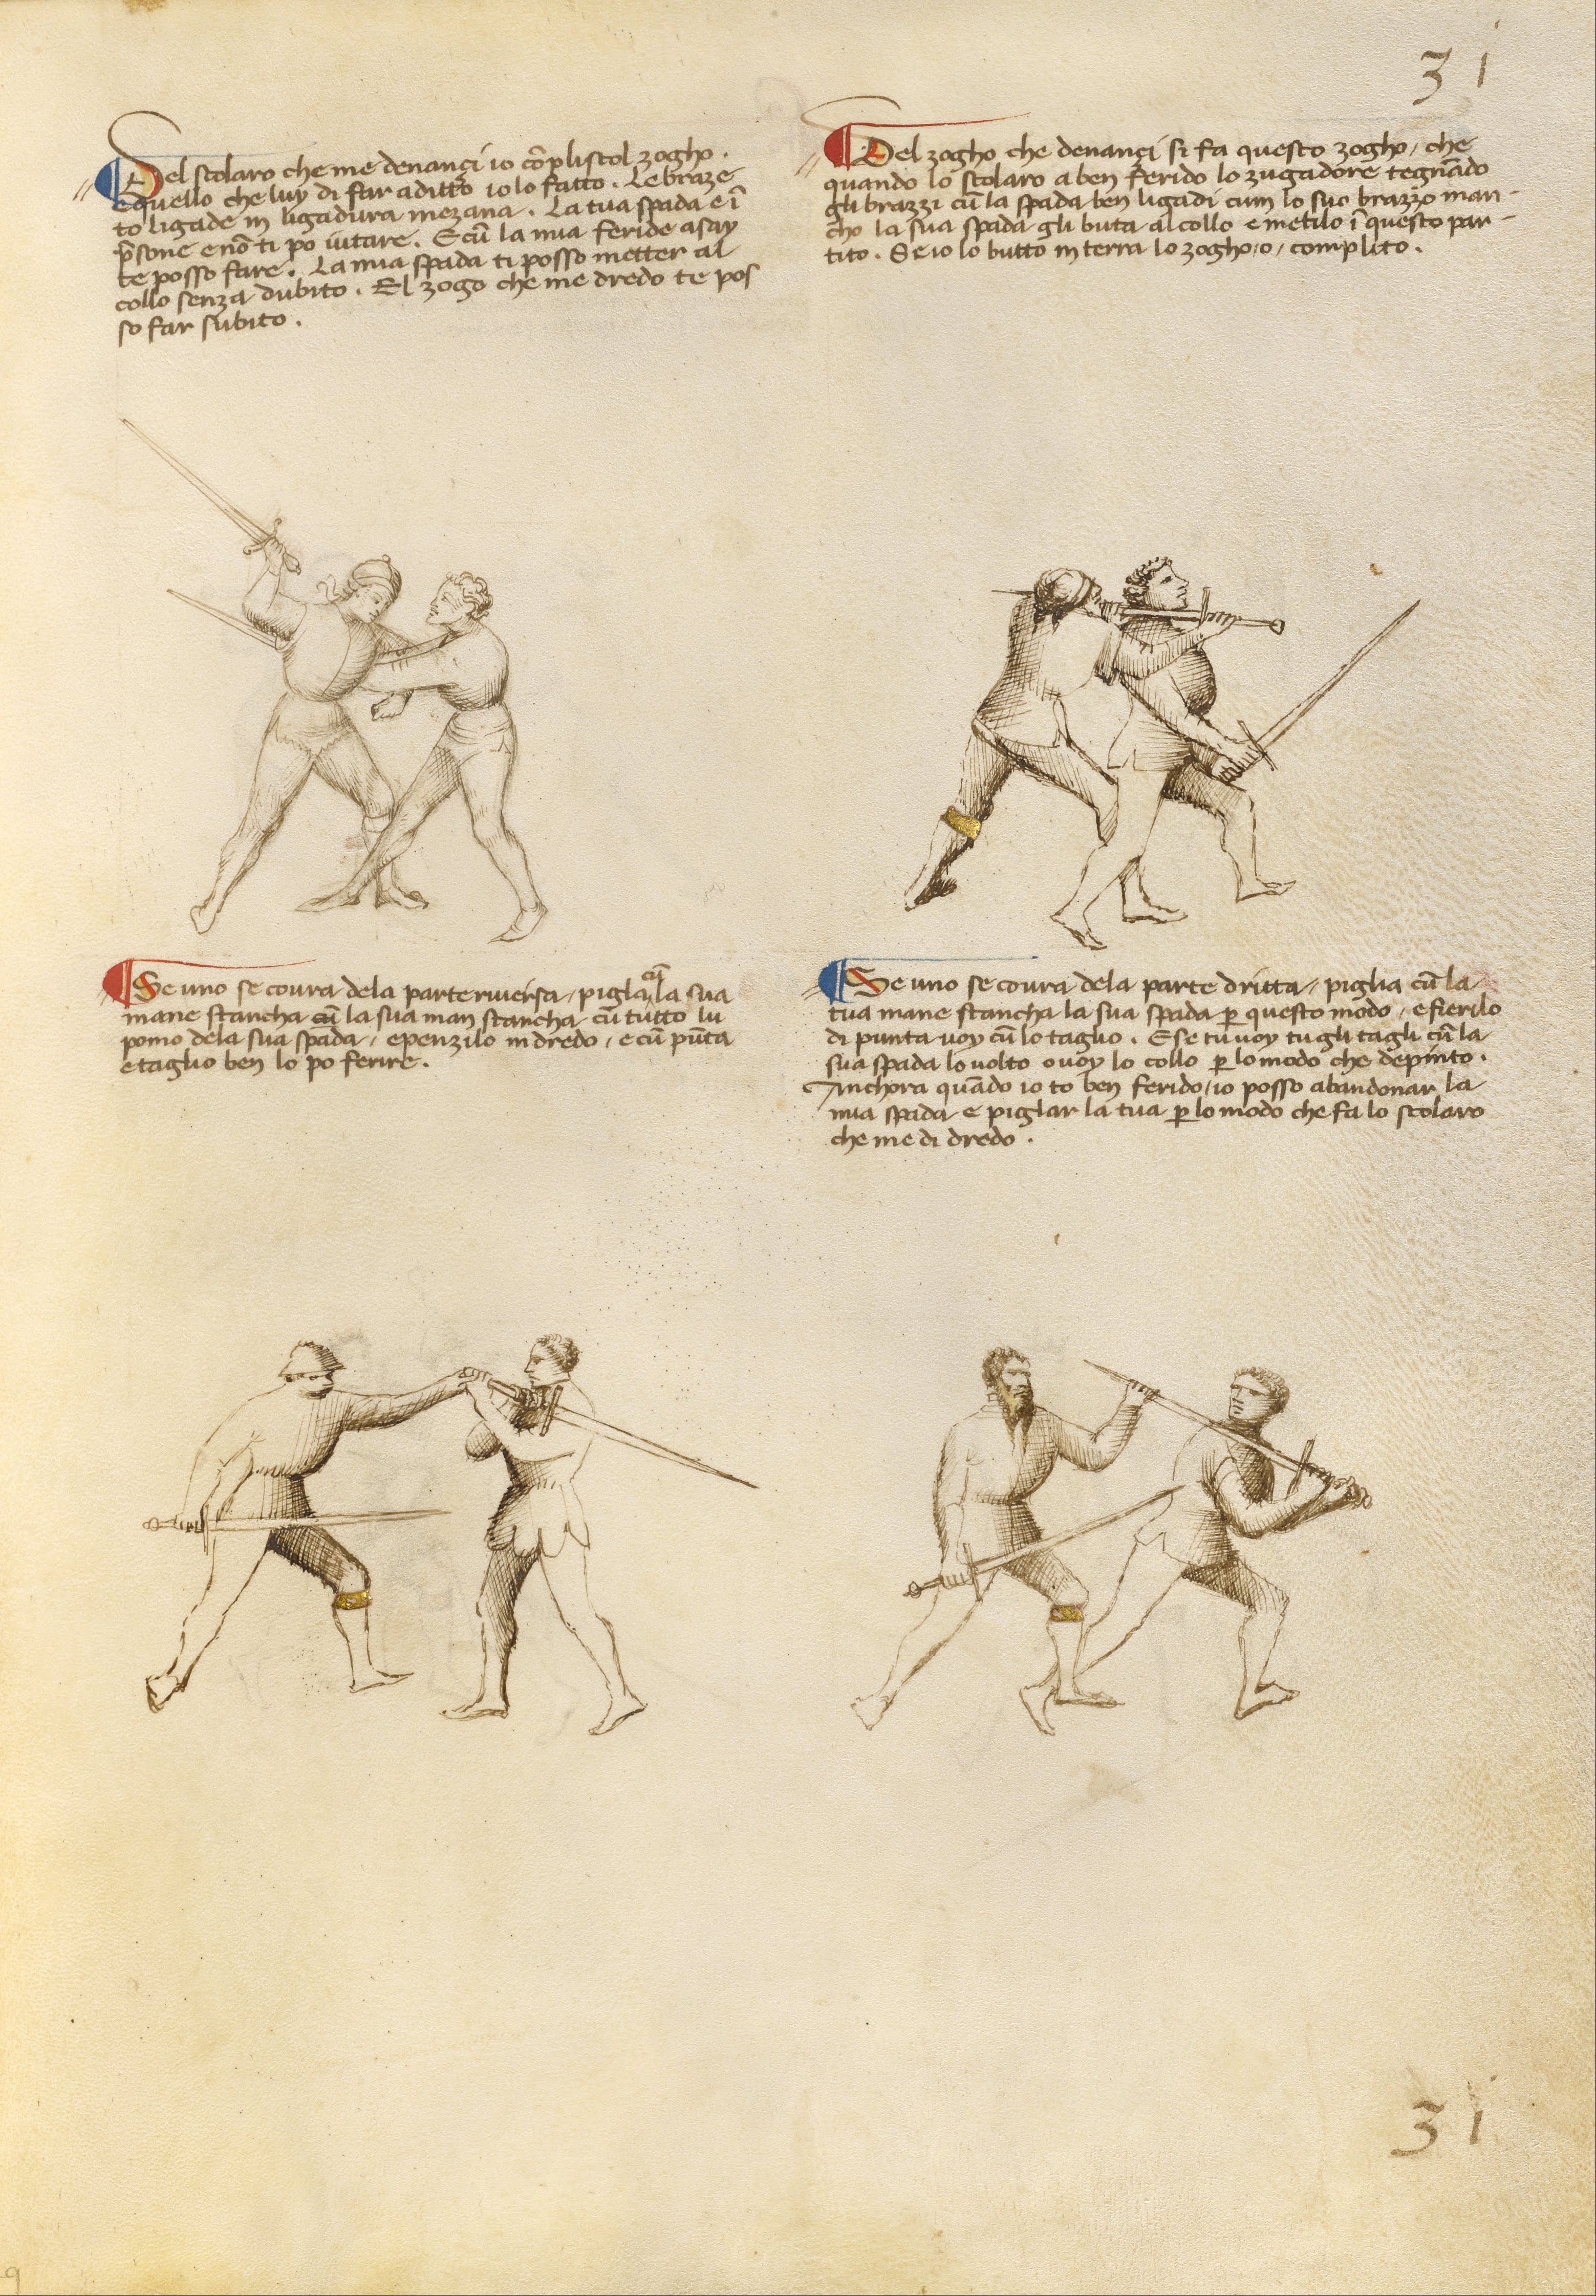 31
Del scolaro che me denançi io cõpliscol zogho .
e quello che luy di far a ditto io lo fatto . Le braze
to ligade in ligadura mezana . La tua spada e ĩ
p̃sone e nõ ti po iutare . E cũ la mia feride asay
te posso fare . La mia spada ti posso metter al
collo senza dubito . El zogo che me dredo te pos
so far subito .
Del zogho che denançi si fa questo zogho / che
quando lo scolaro a ben ferido lo zugadore tegnãdo
gli brazzi cũ la spada ben ligadi cum lo suo brazzo man-
cho la sua spada gli buta al collo e metilo ĩ questo par-
tito . Se io lo butto in terra lo zogho / o / complito .
Se uno se covra dela parte riversa / pigla cũ la sua
mane stancha cũ la sua man stancha cũ tutto lu
pomo dela sua spada / e penzilo in dredo / e cũ pũta
e taglio ben lo po ferire .
Se uno se covra dela parte dritta / piglia cũ la
tua mane stancha la sua spada ꝑ questo modo / e fierilo
di punta voy cũ lo taglio . E se tu voy tu gli tagli cũ la
sua spada lo volto o voy lo collo ꝑ lo modo che depinto .
Anchora quãdo io to ben ferido / io posso abandonar la
mia spada e piglar la tua ꝑ lo modo che fa lo scolaro
che me di dredo .
31